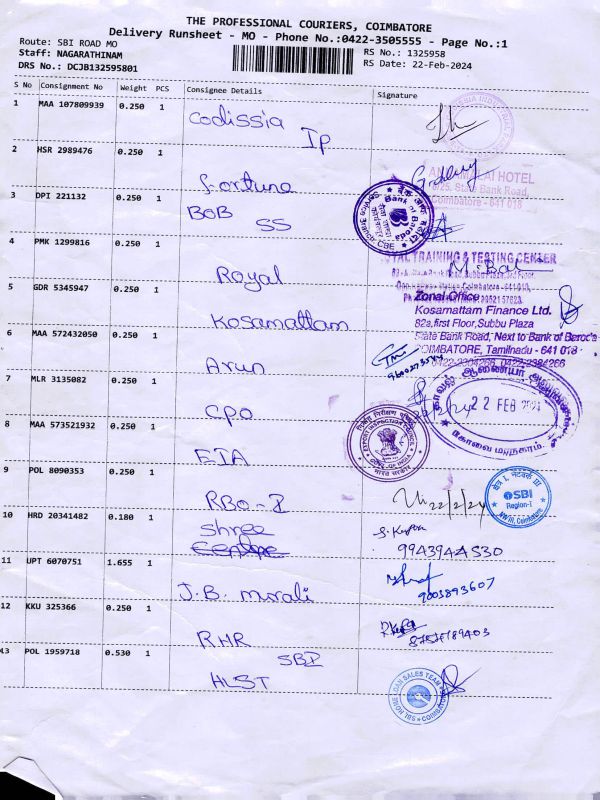 THE PROFESSIONAL COURIERS, COIMBATORE
Delivery Runsheet - MO - Phone No.:0422-3505555 - Page No.:1
Route: SBI ROAD MO
RS No.: 1325958
Staff: NAGARATHINAM
RS Date: 22-Feb-2024
DRS No.: DCJB132595801
S No Consignment No Weight PCS Consignee Details Signature
1 MAA 107809939 0.250 1 Codissia
IP
2 HSR 2989476 0.250 1
HOTEL
State Bank Road,
Coimbatore - 641 018
Fortune
3 DPI 221132 0.250 1 BOB
SS
Bank of Baroda
CBE
4 PMK 1299816 0.250 1
TRAINING & TESTING CENTER
Royal
5 GDR 5345947 0.250 1
Zonal Office
Kosamattam Finance Ltd.
82a, first Floor, Subbu Plaza
State Bank Road, Next to Bank of Baroda
COIMBATORE, Tamilnadu - 641 018
0422-2384266
Kosamattam
6 MAA 572432050 0.250 1
Arun
7 MLR 3135082 0.250 1
22 FEB
CPO
8 MAA 573521932 0.250 1
EIA
9 POL 8090353 0.250 1
RBO-I
22/2/24
SBI
Region-I
10 HRD 20341482 0.180 1 Shree
9943944530
11 UPT 6070751 1.655 1
J.B. murali
9003893607
12 KKU 325366 0.250 1
RHR
13 POL 1959718 0.530 1 SBI
HLST
HOME LOAN SALES TEAM
SBI COIMBATORE